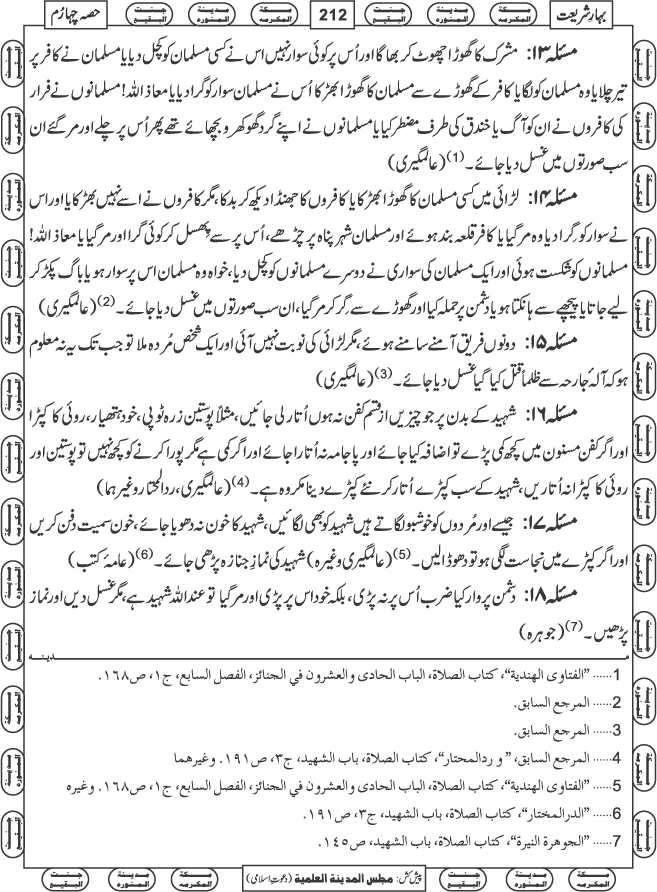 بہارِ شریعت
مکۃ المکرمہ
جنت البقیع
212
مکۃ المکرمہ
مدینۃ المنورہ
جنت البقیع
حصہ چہارم
مسئلہ ۱۳: مشرک کا گھوڑا چھوٹ کر بھاگا اور اُس پر کوئی سوار نہیں اس نے کسی مسلمان کو کچل دیا یا مسلمان نے کافر پر
تیر چلایا وہ مسلمان کو لگا یا کافر کے گھوڑے سے مسلمان کا گھوڑا بھڑکا اُس نے مسلمان سوار کو گرا دیا یا معاذ اللہ! مسلمانوں نے فرار
کی کافروں نے ان کو آگ یا خندق کی طرف مضطر کیا یا مسلمانوں نے اپنے گرد گوکھرو بچھائے تھے پھر اُس پر چلے اور مر گئے ان
سب صورتوں میں غسل دیا جائے۔ (1) (عالمگیری)
مسئلہ ۱۴: لڑائی میں کسی مسلمان کا گھوڑا بھڑکا یا کافروں کا جھنڈا دیکھ کر بدکا، مگر کافروں نے اسے نہیں بھڑکایا اور اس
نے سوار کو گرا دیا وہ مر گیا یا کافر قلعہ بند ہوئے اور مسلمان شہر پناہ پر چڑھے، اُس پر سے پھسل کر کوئی گرا اور مر گیا یا معاذ اللہ!
مسلمانوں کو شکست ہوئی اور ایک مسلمان کی سواری نے دوسرے مسلمانوں کو کچل دیا، خواہ وہ مسلمان اس پر سوار ہو یا باگ پکڑ کر
لیے جاتا یا پیچھے سے ہانکتا ہو یا دشمن پر حملہ کیا اور گھوڑے سے گر کر مر گیا، ان سب صورتوں میں غسل دیا جائے۔ (2) (عالمگیری)
مسئلہ ۱۵: دونوں فریق آمنے سامنے ہوئے، مگر لڑائی کی نوبت نہیں آئی اور ایک شخص مُردہ ملا تو جب تک یہ نہ معلوم
ہو کہ آلۂ جارحہ سے ظلماً قتل کیا گیا غسل دیا جائے۔ (3) (عالمگیری)
مسئلہ ۱۶: شہید کے بدن پر جو چیزیں از قسم کفن نہ ہوں اُتار لی جائیں، مثلاً پوستین زرہ ٹوپی، خود ہتھیار، روئی کا کپڑا
اور اگر کفن مسنون میں کچھ کمی پڑے تو اضافہ کیا جائے اور پاجامہ نہ اُتارا جائے اور اگر کمی ہے مگر پورا کرنے کو کچھ نہیں تو پوستین اور
روئی کا کپڑا نہ اُتاریں، شہید کے سب کپڑے اُتار کر نئے کپڑے دینا مکروہ ہے۔ (4) (عالمگیری، ردالمحتار وغیرہما)
مسئلہ ۱۷: جیسے اور مُردوں کو خوشبو لگاتے ہیں شہید کو بھی لگائیں، شہید کا خون نہ دھویا جائے، خون سمیت دفن کریں
اور اگر کپڑے میں نجاست لگی ہو تو دھو ڈالیں۔ (5) (عالمگیری وغیرہ) شہید کی نمازِ جنازہ پڑھی جائے۔ (6) (عامہ کتب)
مسئلہ ۱۸: دشمن پر وار کیا ضرب اُس پر نہ پڑی، بلکہ خود اس پر پڑی اور مر گیا تو عند اللہ شہید ہے، مگر غسل دیں اور نماز
پڑھیں۔ (7) (جوہرہ)
مدینہ
1...... ”الفتاوی الھندیة“، کتاب الصلاة، الباب الحادی والعشرون في الجنائز، الفصل السابع، ج۱، ص۱۶۸.
2...... المرجع السابق.
3...... المرجع السابق.
4...... المرجع السابق، ” و ردالمحتار“، کتاب الصلاة، باب الشهید، ج۳، ص۱۹۱. وغیرهما
5...... ”الفتاوی الھندیة“، کتاب الصلاة، الباب الحادی والعشرون في الجنائز، الفصل السابع، ج۱، ص۱۶۸. وغیره
6...... ”الدرالمختار“، کتاب الصلاة، باب الشهید، ج۳، ص۱۹۱.
7...... ”الجوهرة النیرة“، کتاب الصلاة، باب الشهید، ص۱۴۵.
مکۃ المکرمہ
مدینۃ المنورہ
جنت البقیع
پیش کش: مجلس المدینة العلمیة (دعوتِ اسلامی)
مکۃ المکرمہ
مدینۃ المنورہ
جنت البقیع